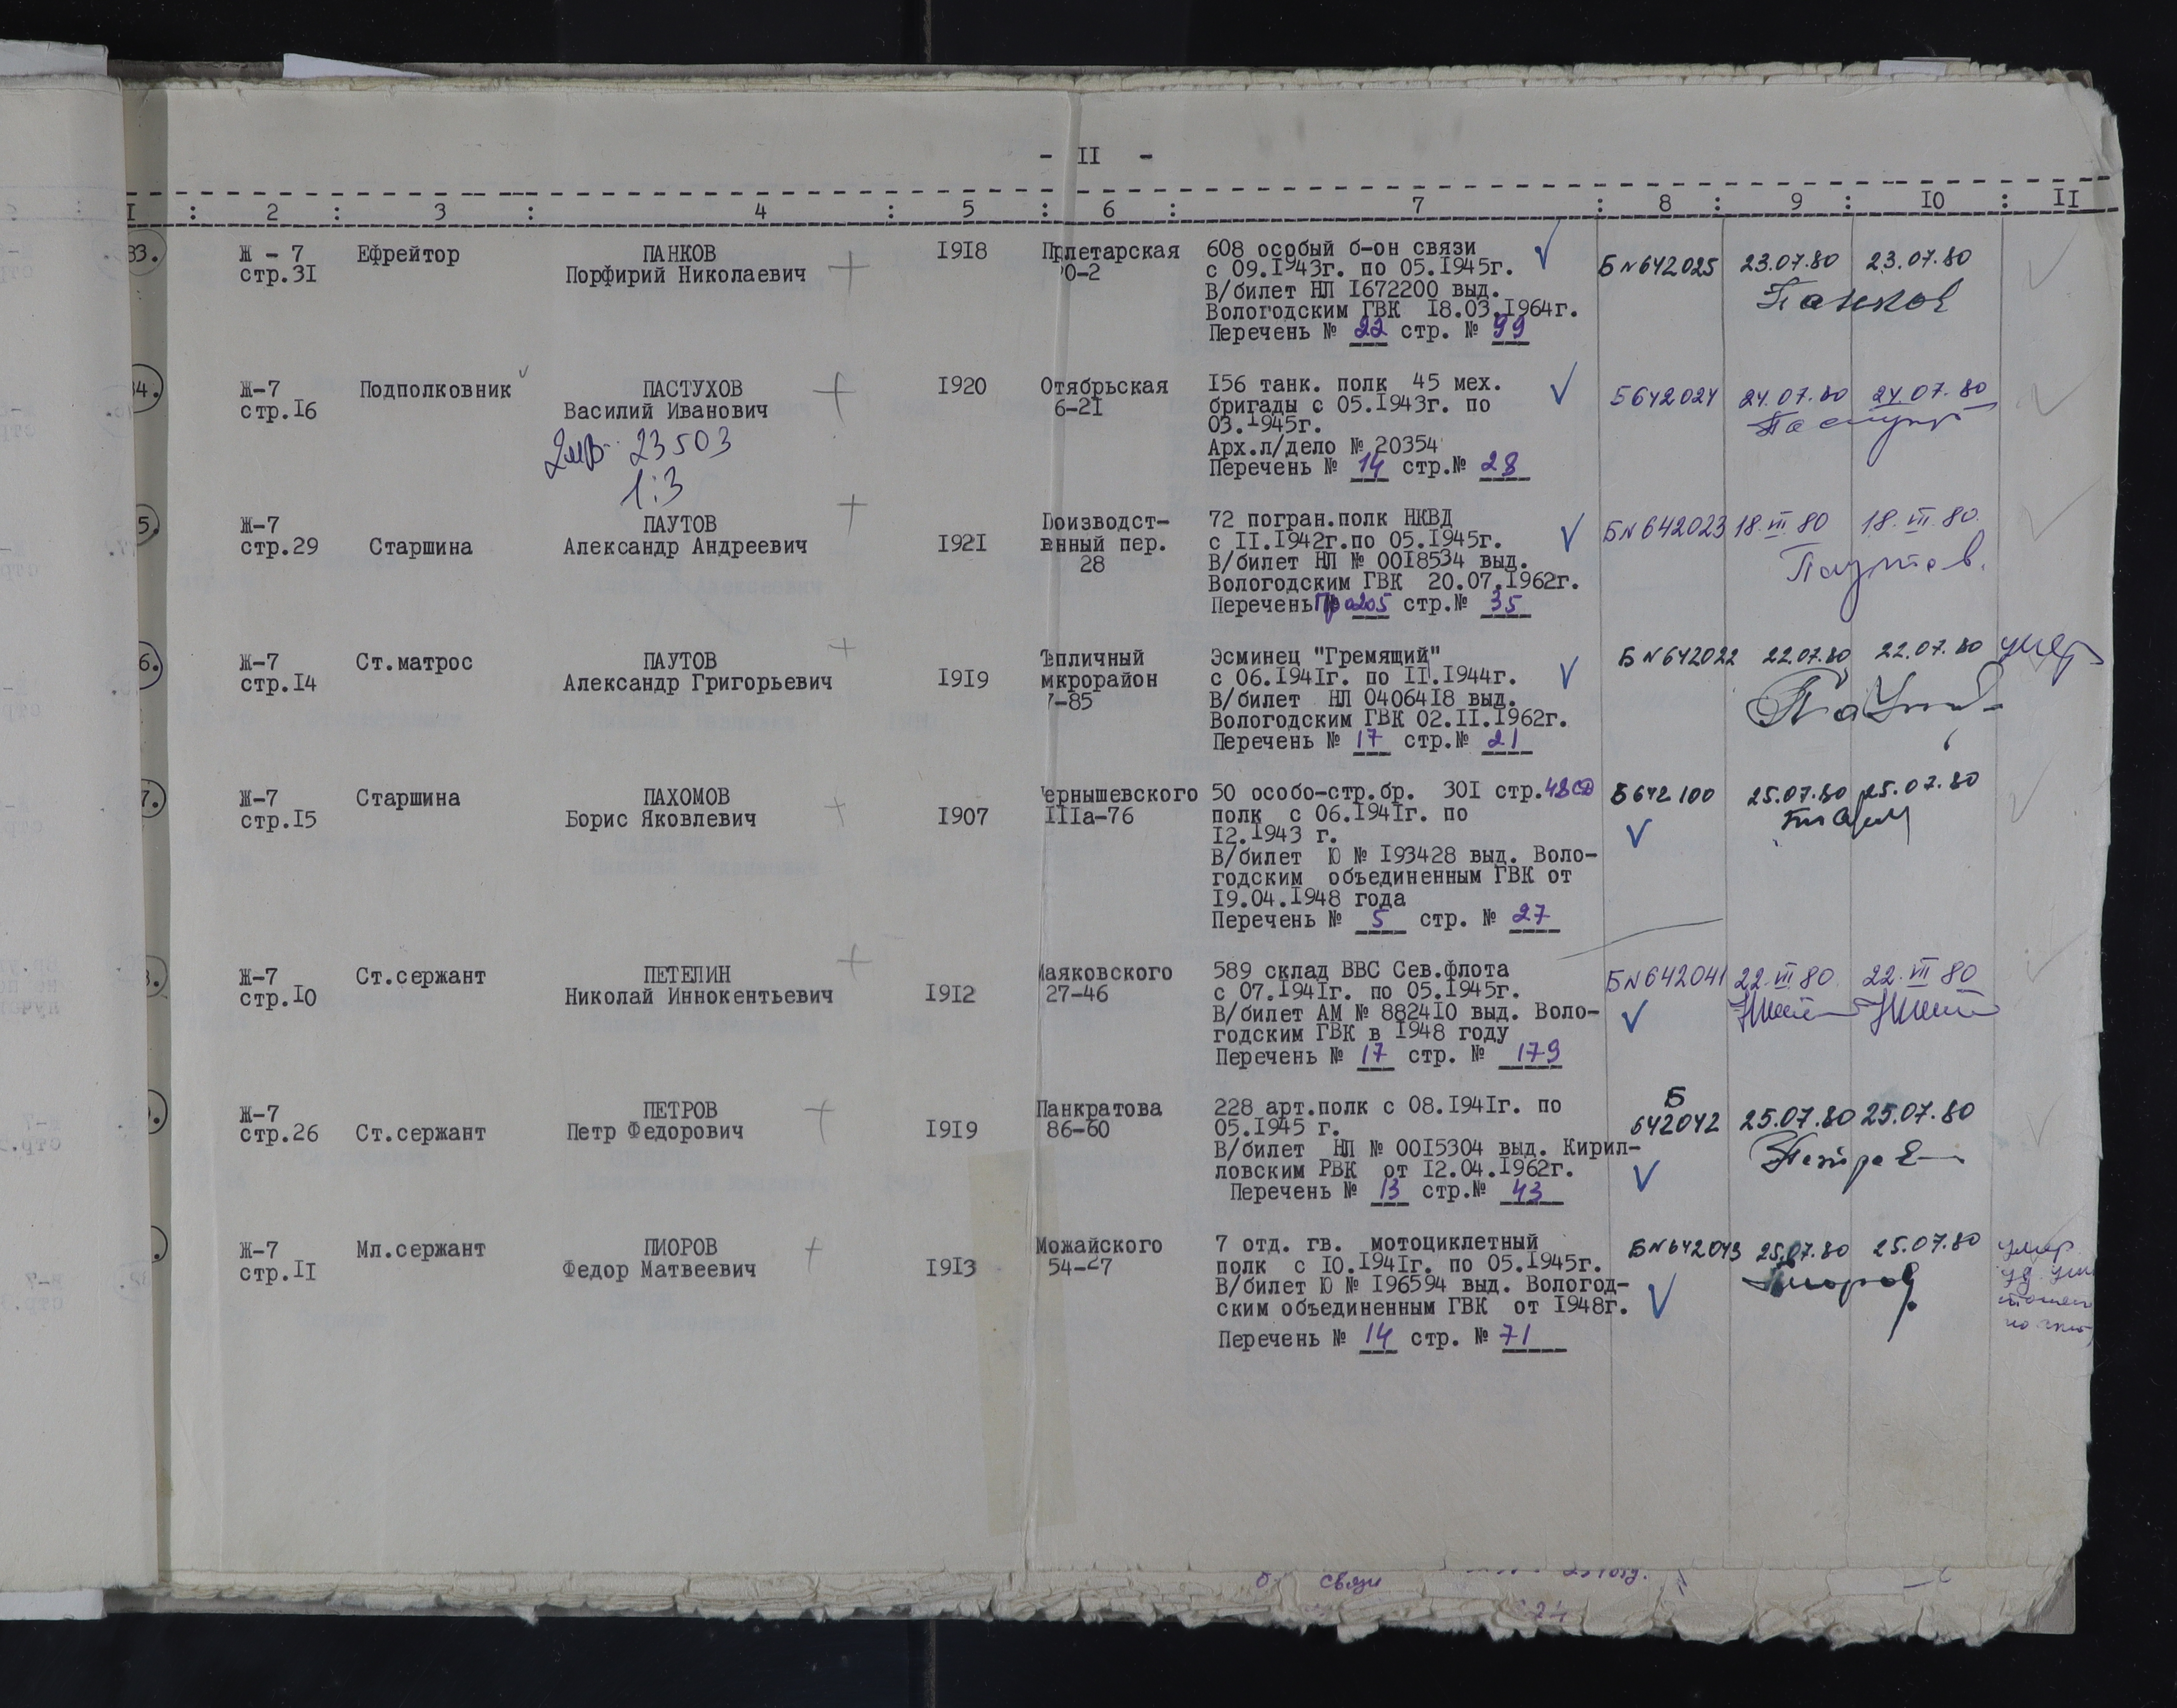 - II -
I : 2 : 3 : 4 : 5 : 6 : 7 : 8 : 9 : 10 : II
33. Ж - 7 Ефрейтор ПАНКОВ I9I8 Прлетарская 608 особый б-он связи
стр.3I Порфирий Николаевич 0-2 с 09.I943г. по 05.I945г. Б№642025 23.07.80 23.07.80
В/билет НЛ I672200 выд. Панков
Вологодским ГВК I8.03.I964г.
Перечень № 22 стр. № 99
34. Ж-7 Подполковник ПАСТУХОВ I920 Отябрьская I56 танк. полк 45 мех. Б642024 24.07.80 24.07.80
стр.I6 Василий Иванович 6-2I бригады с 05.I943г. по
23503 03.I945г.
Арх.л/дело № 20354
1:3 Перечень № 14 стр.№ 28
5. Ж-7 ПАУТОВ Поизводст- 72 погран.полк НКВД Б№642023 18.III.80 18.III.80
стр.29 Старшина Александр Андреевич I92I внный пер. с II.I942г.по 05.I945г.
28 В/билет НЛ № 00I8534 выд. Паутов.
Вологодским ГВК 20.07.I962г.
Перечень Пр 0205 стр.№ 35
6. Ж-7 Ст.матрос ПАУТОВ Тпличный Эсминец "Гремящий" Б№642022 22.07.80 22.07.80 умер
стр.I4 Александр Григорьевич I9I9 мкрорайон с 06.I94Iг. по II.I944г.
7-85 В/билет НЛ 04064I8 выд.
Вологодским ГВК 02.II.I962г.
Перечень № 17 стр.№ 21
7. Ж-7 Старшина ПАХОМОВ ернышевского 50 особо-стр.бр. 30I стр.48СД Б642100 25.07.80 25.07.80
стр.I5 Борис Яковлевич I907 IIIа-76 полк с 06.I94Iг. по
I2.I943 г.
В/билет Ю № I93428 выд. Воло-
годским объединенным ГВК от
I9.04.I948 года
Перечень № 5 стр. № 27
8. Ж-7 Ст.сержант ПЕТЕЛИН Маяковского 589 склад ВВС Сев.флота Б№642041 22.III.80. 22.III 80
стр.I0 Николай Иннокентьевич I9I2 27-46 с 07.I94Iг. по 05.I945г.
В/билет АМ № 8824I0 выд. Воло-
годским ГВК в I948 году
Перечень № 17 стр. № 179
Ж-7 ПЕТРОВ Панкратова 228 арт.полк с 08.I94Iг. по Б
стр.26 Ст.сержант Петр Федорович I9I9 86-60 05.I945 г. 642042 25.07.80 25.07.80
В/билет НЛ № 00I5304 выд. Кирил-
ловским РВК от I2.04.I962г.
Перечень № 13 стр.№ 43
Ж-7 Мл.сержант ПИОРОВ Можайского 7 отд. гв. мотоциклетный Б№642043 25.07.80 25.07.80 умер
стр.II Федор Матвеевич I9I3 54-27 полк с I0.I94Iг. по 05.I945г. Пиоров
В/билет Ю № I96594 выд. Вологод-
ским объединенным ГВК от I948г.
Перечень № 14 стр. № 71
связи